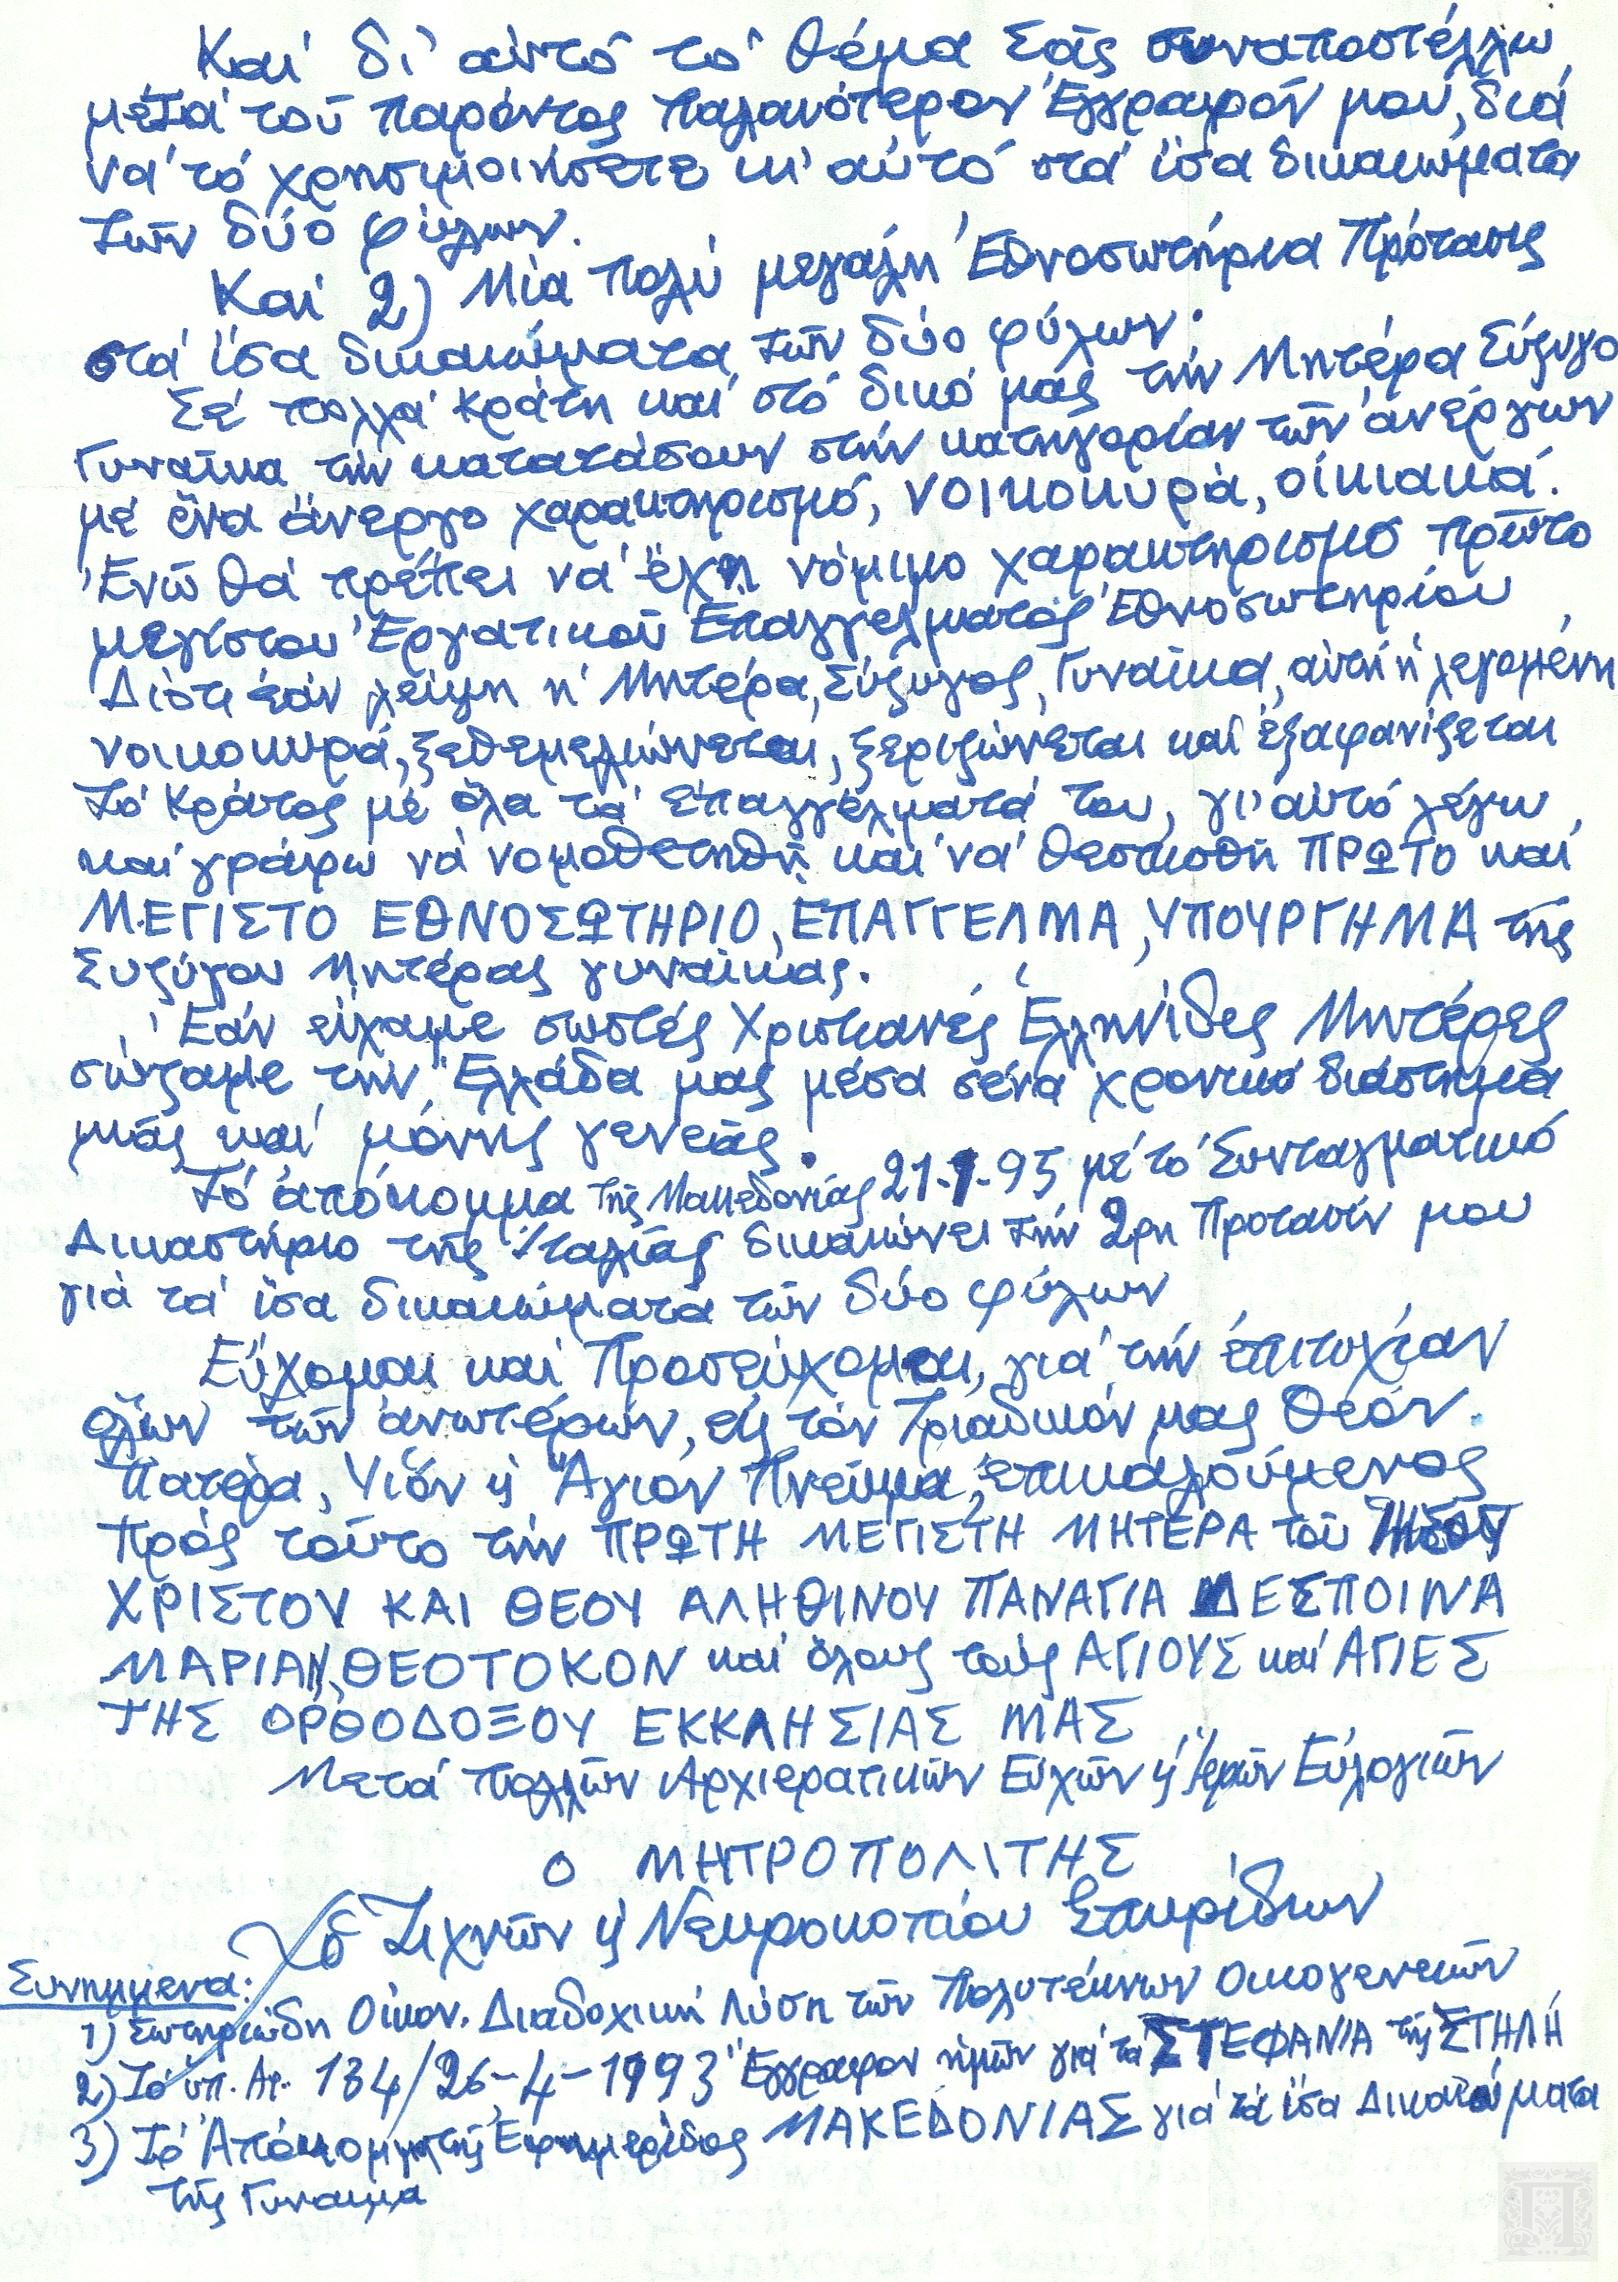 Καί δι' αὐτό τό θέμα Σᾶς συναποστέλλω
μετά τοῦ παρόντος παλαιότερον Ἔγγραφόν μου, διά
νά τό χρησιμοποιήσετε κι' αὐτό στά ἴσα δικαιώματα
τῶν δύο φύλων.
Καί 2) Μία πολύ μεγάλη Ἐθνοσωτήρια Πρότασις
στά ἴσα δικαιώματα τῶν δύο φύλων.
Σέ πολλά κράτη καί στό δικό μας τήν Μητέρα Σύζυγο
Γυναῖκα τήν κατατάσουν στήν κατηγορίαν τῶν ἀνέργων
μέ ἕνα ἄνεργο χαρακτηρισμό, νοικοκυρά, οἰκιακά.
Ἐνῶ θά πρέπει νά ἔχη νόμιμο χαρακτηρισμό πρῶτο
μεγίστου Ἐργατικοῦ Ἐπαγγέλματος Ἐθνοσωτηρίου
Διότι ἐάν λείψη ἡ Μητέρα, Σύζυγος, Γυναῖκα, αὐτή ἡ λεγομένη
νοικοκυρά, ξεθεμελιώνεται, ξεριζώνεται καί ἐξαφανίζεται
τό Κράτος μέ ὅλα τά ἐπαγγέλματά του, γι' αὐτό λέγω
καί γράφω νά νομοθετηθῆ καί νά θεσπισθῆ ΠΡΩΤΟ καί
ΜΕΓΙΣΤΟ ΕΘΝΟΣΩΤΗΡΙΟ, ΕΠΑΓΓΕΛΜΑ, ΥΠΟΥΡΓΗΜΑ τῆς
Συζύγου Μητέρας γυναίκας.
Ἐάν εἴχαμε σωστές Χριστιανές Ἑλληνίδες Μητέρες
σώζαμε τήν Ἑλλάδα μας μέσα σένα χρονικό διάστημα
μιᾶς καί μόνης γενεᾶς.
Τό ἀπόκομμα τῆς Μακεδονίας 21-1-95 μέ τό Συνταγματικό
Δικαστήριο τῆς Ἰταλίας δικαιώνει τήν 2ρη Πρότασίν μου
γιά τά ἴσα δικαιώματα τῶν δύο φύλων
Εὔχομαι καί Προσεύχομαι, γιά τήν ἐπιτυχίαν
ὅλων τῶν ἀνωτέρων, εἰς τόν Τριαδικόν μας Θεόν.
Πατέρα, Υἱόν ϗ Ἅγιον Πνεῦμα, ἐπικαλούμενος
πρός τοῦτο τήν ΠΡΩΤΗ ΜΕΓΙΣΤΗ ΜΗΤΕΡΑ τοῦ Ἰησοῦ
ΧΡΙΣΤΟΥ ΚΑΙ ΘΕΟΥ ΑΛΗΘΙΝΟΥ ΠΑΝΑΓΙΑ ΔΕΣΠΟΙΝΑ
ΜΑΡΙΑΝ, ΘΕΟΤΟΚΟΝ καί ὅλους τούς ΑΓΙΟΥΣ καί ΑΓΙΕΣ
ΤΗΣ ΟΡΘΟΔΟΞΟΥ ΕΚΚΛΗΣΙΑΣ ΜΑΣ
Μετά πολλῶν Ἀρχιερατικῶν Εὐχῶν ϗ Ἱερῶν Εὐλογιῶν
Ο ΜΗΤΡΟΠΟΛΙΤΗΣ
Ζιχνῶν ϗ Νευροκοπίου Σπυρίδων
Συνημμένα:
1) Σωτηριώδη Οἰκον. Διαδοχική Λύση τῶν Πολυτέκνων Οἰκογενειῶν
2) Τό ὑπ. Ἀρ. 134/26-4-1993 Ἔγγραφον ἡμῶν γιά τά ΣΤΕΦΑΝΙΑ τῆς ΣΤΗΛΗ
3) Τό Ἀπόκομμα τῆς Ἐφημερίδος ΜΑΚΕΔΟΝΙΑΣ γιά τά ἴσα Δικαιώματα
τῆς Γυναίκα